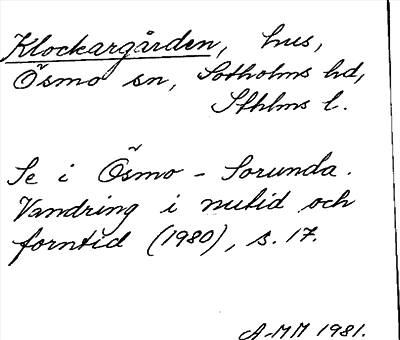 Klockargården, hus,
Ösmo sn, Sotholms hd,
Sthlms l.
Se i Ösmo - Sorunda.
Vandring i nutid och
forntid (1980), s. 17.
A-MM 1981.